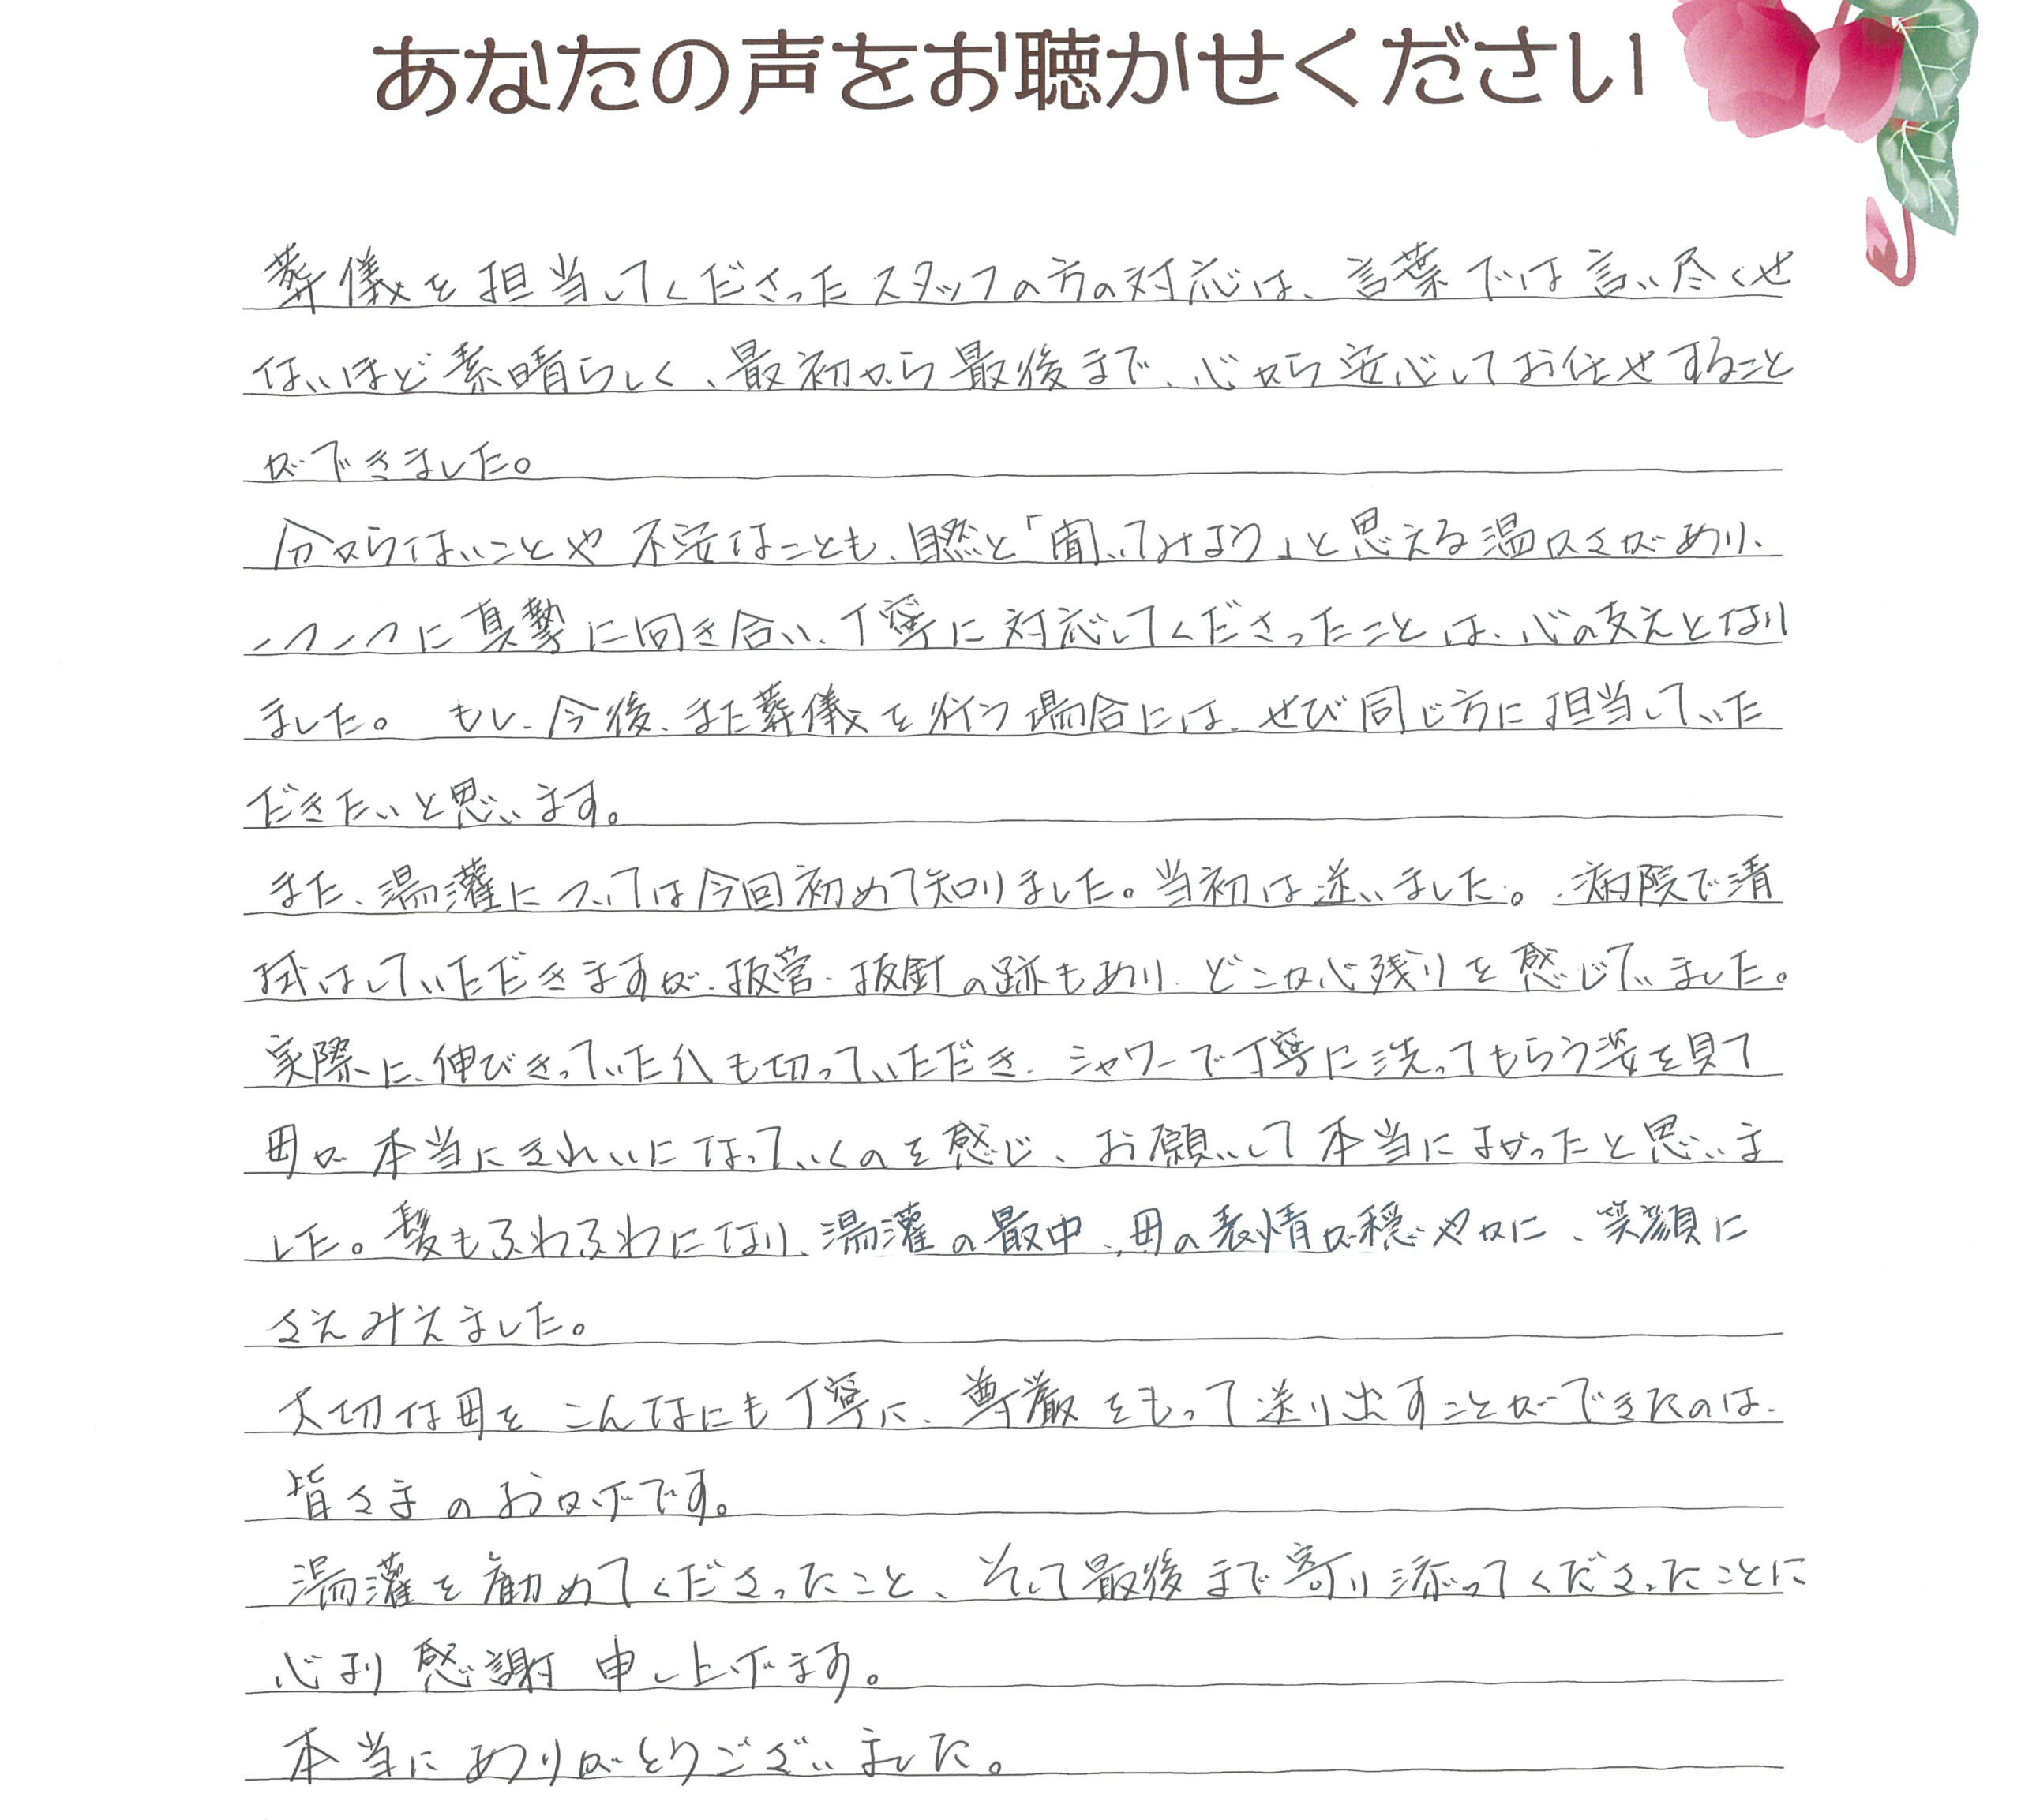 あなたの声をお聴かせください
葬儀を担当してくださったスタッフの方の対応は、言葉では言い尽くせ
ないほど素晴らしく、最初から最後まで、心から安心してお任せすること
ができました。
分からないことや不安なことも、自然と「聞いてみよう」と思える温かさがあり、
一つ一つに真摯に向き合い、丁寧に対応してくださったことは、心の支えとなり
ました。もし、今後、また葬儀を行う場合には、ぜひ同じ方に担当していた
だきたいと思います。
また、湯灌については今回初めて知りました。当初は迷いました。病院で清
拭はしていただきますが、抜管・抜針の跡もあり、どこか心残りを感じていました。
実際に、伸びきっていた爪も切っていただき、シャワーで丁寧に洗ってもらう姿を見て
母が本当にきれいになっていくのを感じ、お願いして本当によかったと思いま
した。髪もふわふわになり、湯灌の最中、母の表情が穏やかに、笑顔に
さえみえました。
大切な母をこんなにも丁寧に、尊厳をもって送り出すことができたのは、
皆さまのおかげです。
湯灌を勧めてくださったこと、そして最後まで寄り添ってくださったことに
心より感謝申し上げます。
本当にありがとうございました。